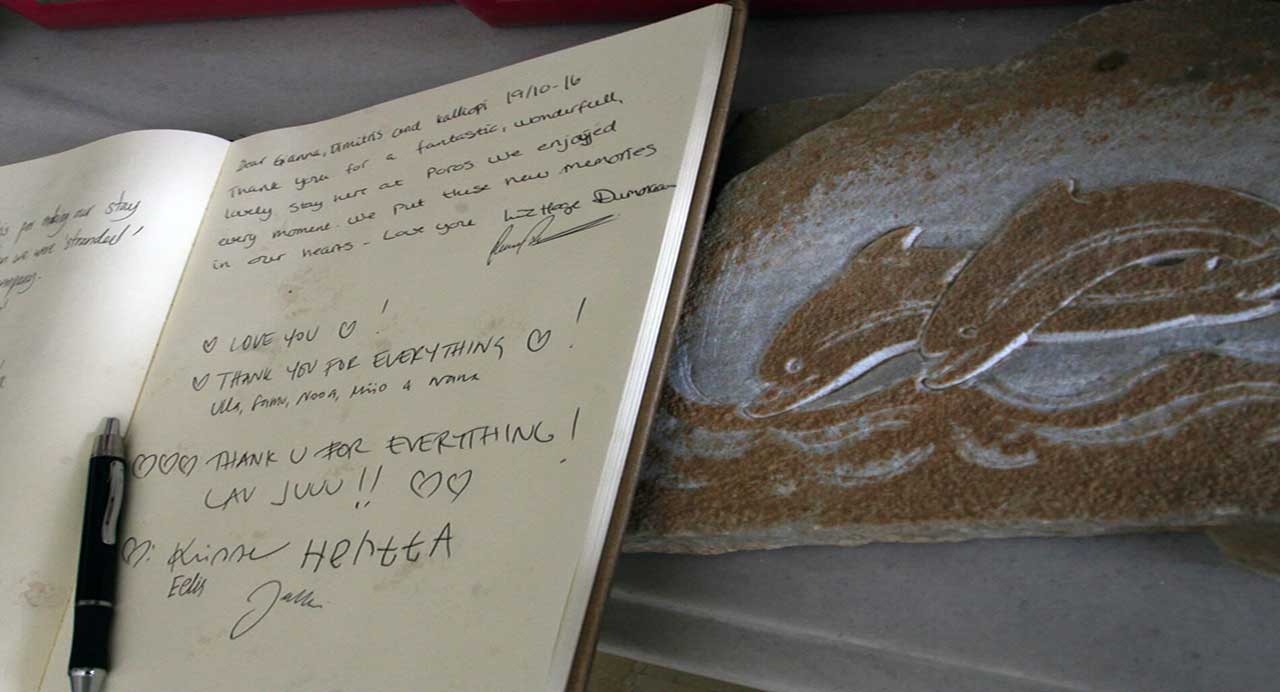 for making our stay
we were 'stranded'
Dear Gianna, Dimitris and Kalliopi 19/10-16
Thank you for a fantastic, wonderfull,
lovely stay here at Poros we enjoyed
every moment. We put these new memories
in our hearts - Love you
♡ LOVE YOU ♡ !
♡ THANK YOU FOR EVERYTHING ♡ !
Ulla, Noora,
♡♡♡ THANK U FOR EVERYTHING!
LAV JUUU!! ♡♡
♡: